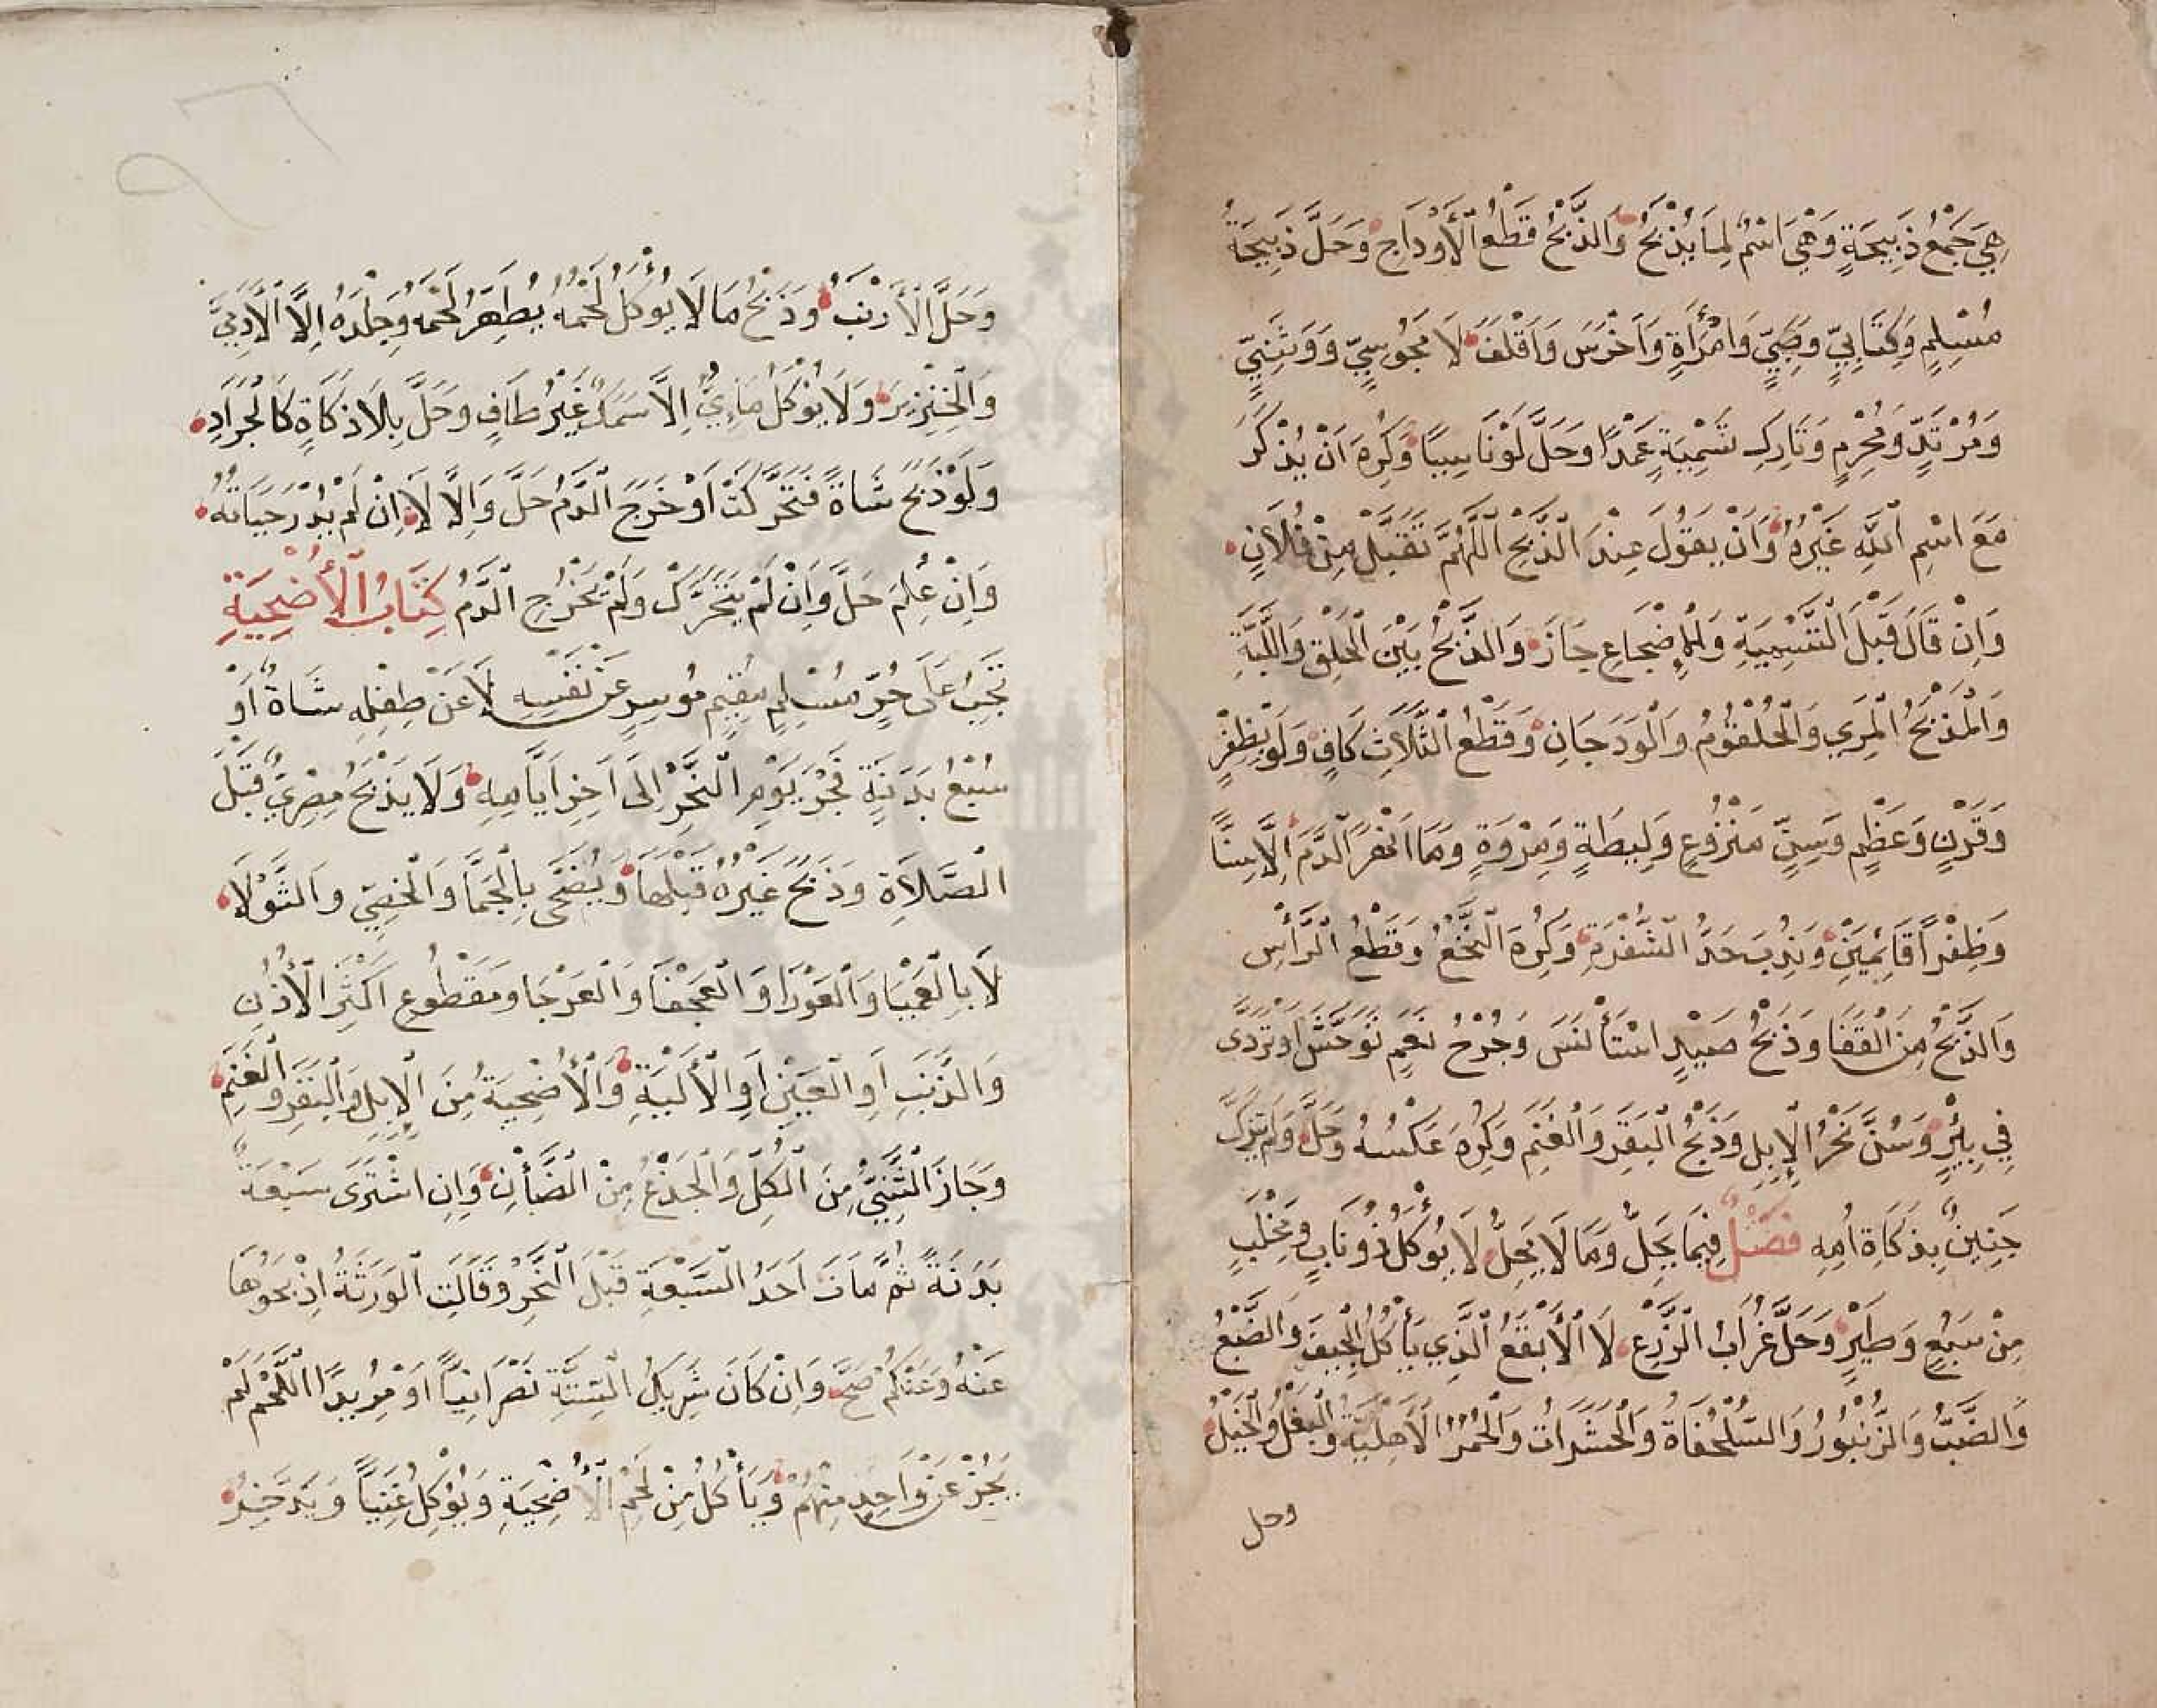 هِيَ جَمْعُ ذَبِيحَةٍ وَهِيَ اسْمٌ لِمَا يُذْبَحُ وَالذَّبْحُ قَطْعُ الْأَوْدَاجِ وَحَلَّ ذَبِيحَةُ
مُسْلِمٍ وَكِتَابِيٍّ وَصَبِيٍّ وَامْرَأَةٍ وَأَخْرَسَ وَأَقْلَفَ لَا مَجُوسِيٍّ وَوَثَنِيٍّ
وَمُرْتَدٍّ وَمُحْرِمٍ وَتَارِكِ تَسْمِيَةٍ عَمْدًا وَحَلَّ لَوْ نَاسِيًا وَكُرِهَ أَنْ يُذْكَرَ
مَعَ اسْمِ اللَّهِ غَيْرُهُ وَأَنْ يَقُولَ عِنْدَ الذَّبْحِ اللَّهُمَّ تَقَبَّلْ مِنْ فُلَانٍ
وَإِنْ قَالَ قَبْلَ التَّسْمِيَةِ وَالْإِضْجَاعِ جَازَ وَالذَّبْحُ بَيْنَ الْحَلْقِ وَاللَّبَّةِ
وَالْمَذْبَحُ الْمَرِي وَالْحُلْقُومُ وَالْوَدَجَانِ وَقَطْعُ الثَّلَاثِ كَافٍ وَلَوْ بِظُفْرٍ
وَقَرْنٍ وَعَظْمٍ وَسِنٍّ مَنْزُوعٍ وَلِيطَةٍ وَمَرْوَةٍ وَمَا أَنْهَرَ الدَّمَ إِلَّا سِنًّا
وَظِفْرًا قَايِمَيْنِ وَنُدِبَ حَدُّ الشَّفْرَةِ وَكُرِهَ النَّخْعُ وَقَطْعُ الرَّأْسِ
وَالذَّبْحُ مِنَ الْقَفَا وَذَبْحُ صَيْدٍ اسْتَأْنَسَ وَجُرْحُ نَعَمٍ تَوَحَّشَ أَوْ تَرَدَّى
فِي بِئْرٍ وَسُنَّ نَحْرُ الْإِبِلِ وَذَبْحُ الْبَقَرِ وَالْغَنَمِ وَكُرِهَ عَكْسُهُ وَحَلَّ وَلَمْ يُذَكَّ
جَنِينٌ بِذَكَاةِ أُمِّهِ فَصْلٌ فِيمَا يَحِلُّ وَمَا لَا يَحِلُّ لَا يُوكَلُ ذُو نَابٍ وَمِخْلَبٍ
مِنْ سَبُعٍ وَطَيْرٍ وَحَلَّ غُرَابُ الزَّرْعِ لَا الْأَبْقَعُ الَّذِي يَأْكُلُ الْجِيَفَ وَالضَّبُعُ
وَالضَّبُّ وَالزُّنْبُورُ وَالسُّلَحْفَاةُ وَالْحَشَرَاتُ وَالْحُمُرُ الْأَهْلِيَّةُ وَالْبَغْلُ وَالْخَيْلُ
وحل
وَحَلَّ الْأَرْنَبُ وَذَبْحُ مَا لَا يُؤْكَلُ لَحْمُهُ يُطَهِّرُ لَحْمَهُ وَجِلْدَهُ إِلَّا الْآدَمِيَّ
وَالْخِنْزِيرَ وَلَا يُؤْكَلُ مَائِيٌّ إِلَّا سَمَكٌ غَيْرُ طَافٍ وَحَلَّ بِلَا ذَكَاةٍ كَالْجَرَادِ
وَلَوْ ذَبَحَ شَاةً فَتَحَرَّكَتْ أَوْ خَرَجَ الدَّمُ حَلَّ وَإِلَّا لَا إِنْ لَمْ يُدْرَ حَيَاتُهُ
وَإِنْ عُلِمَ حَلَّ وَإِنْ لَمْ يَتَحَرَّكْ وَلَمْ يَخْرُجِ الدَّمُ كِتَابُ الْأُضْحِيَةِ
تَجِبُ عَلَى حُرٍّ مُسْلِمٍ مُقِيمٍ مُوسِرٍ عَنْ نَفْسِهِ لَا عَنْ طِفْلِهِ شَاةٌ أَوْ
سُبْعُ بَدَنَةٍ فَجْرَ يَوْمِ النَّحْرِ إِلَى آخِرِ أَيَّامِهِ وَلَا يَذْبَحُ مِصْرِيٌّ قَبْلَ
الصَّلَاةِ وَذَبَحَ غَيْرُهُ قَبْلَهَا وَيُضَحَّى بِالْجَمَّا وَالْخَصِيِّ وَالثَّوْلَا
لَا بِالْعَمْيَا وَالْعَوْرَا وَالْعَجْفَا وَالْعَرْجَا وَمَقْطُوعِ أَكْثَرِ الْأُذُنِ
وَالذَّنَبِ أَوِ الْعَيْنِ أَوِ الْأَلْيَةِ وَالْأُضْحِيَةُ مِنَ الْإِبِلِ وَالْبَقَرِ وَالْغَنَمِ
وَجَازَ الثَّنِيُّ مِنَ الْكُلِّ وَالْجَذَعُ مِنَ الضَّأْنِ وَإِنِ اشْتَرَى سَبْعَةٌ
بَدَنَةً ثُمَّ مَاتَ أَحَدُ السَّبْعَةِ قَبْلَ النَّحْرِ وَقَالَتِ الْوَرَثَةُ اذْبَحُوهَا
عَنْهُ وَعَنْكُمْ صَحَّ وَإِنْ كَانَ شَرِيكُ السِّتَّةِ نَصْرَانِيًّا أَوْ مُرِيدًا اللَّحْمَ لَمْ
يَجُزْ عَنْ وَاحِدٍ مِنْهُمْ وَيَأْكُلُ مِنْ لَحْمِ الْأُضْحِيَةِ وَيُؤْكِلُ غَنِيًّا وَيَدَّخِرُ